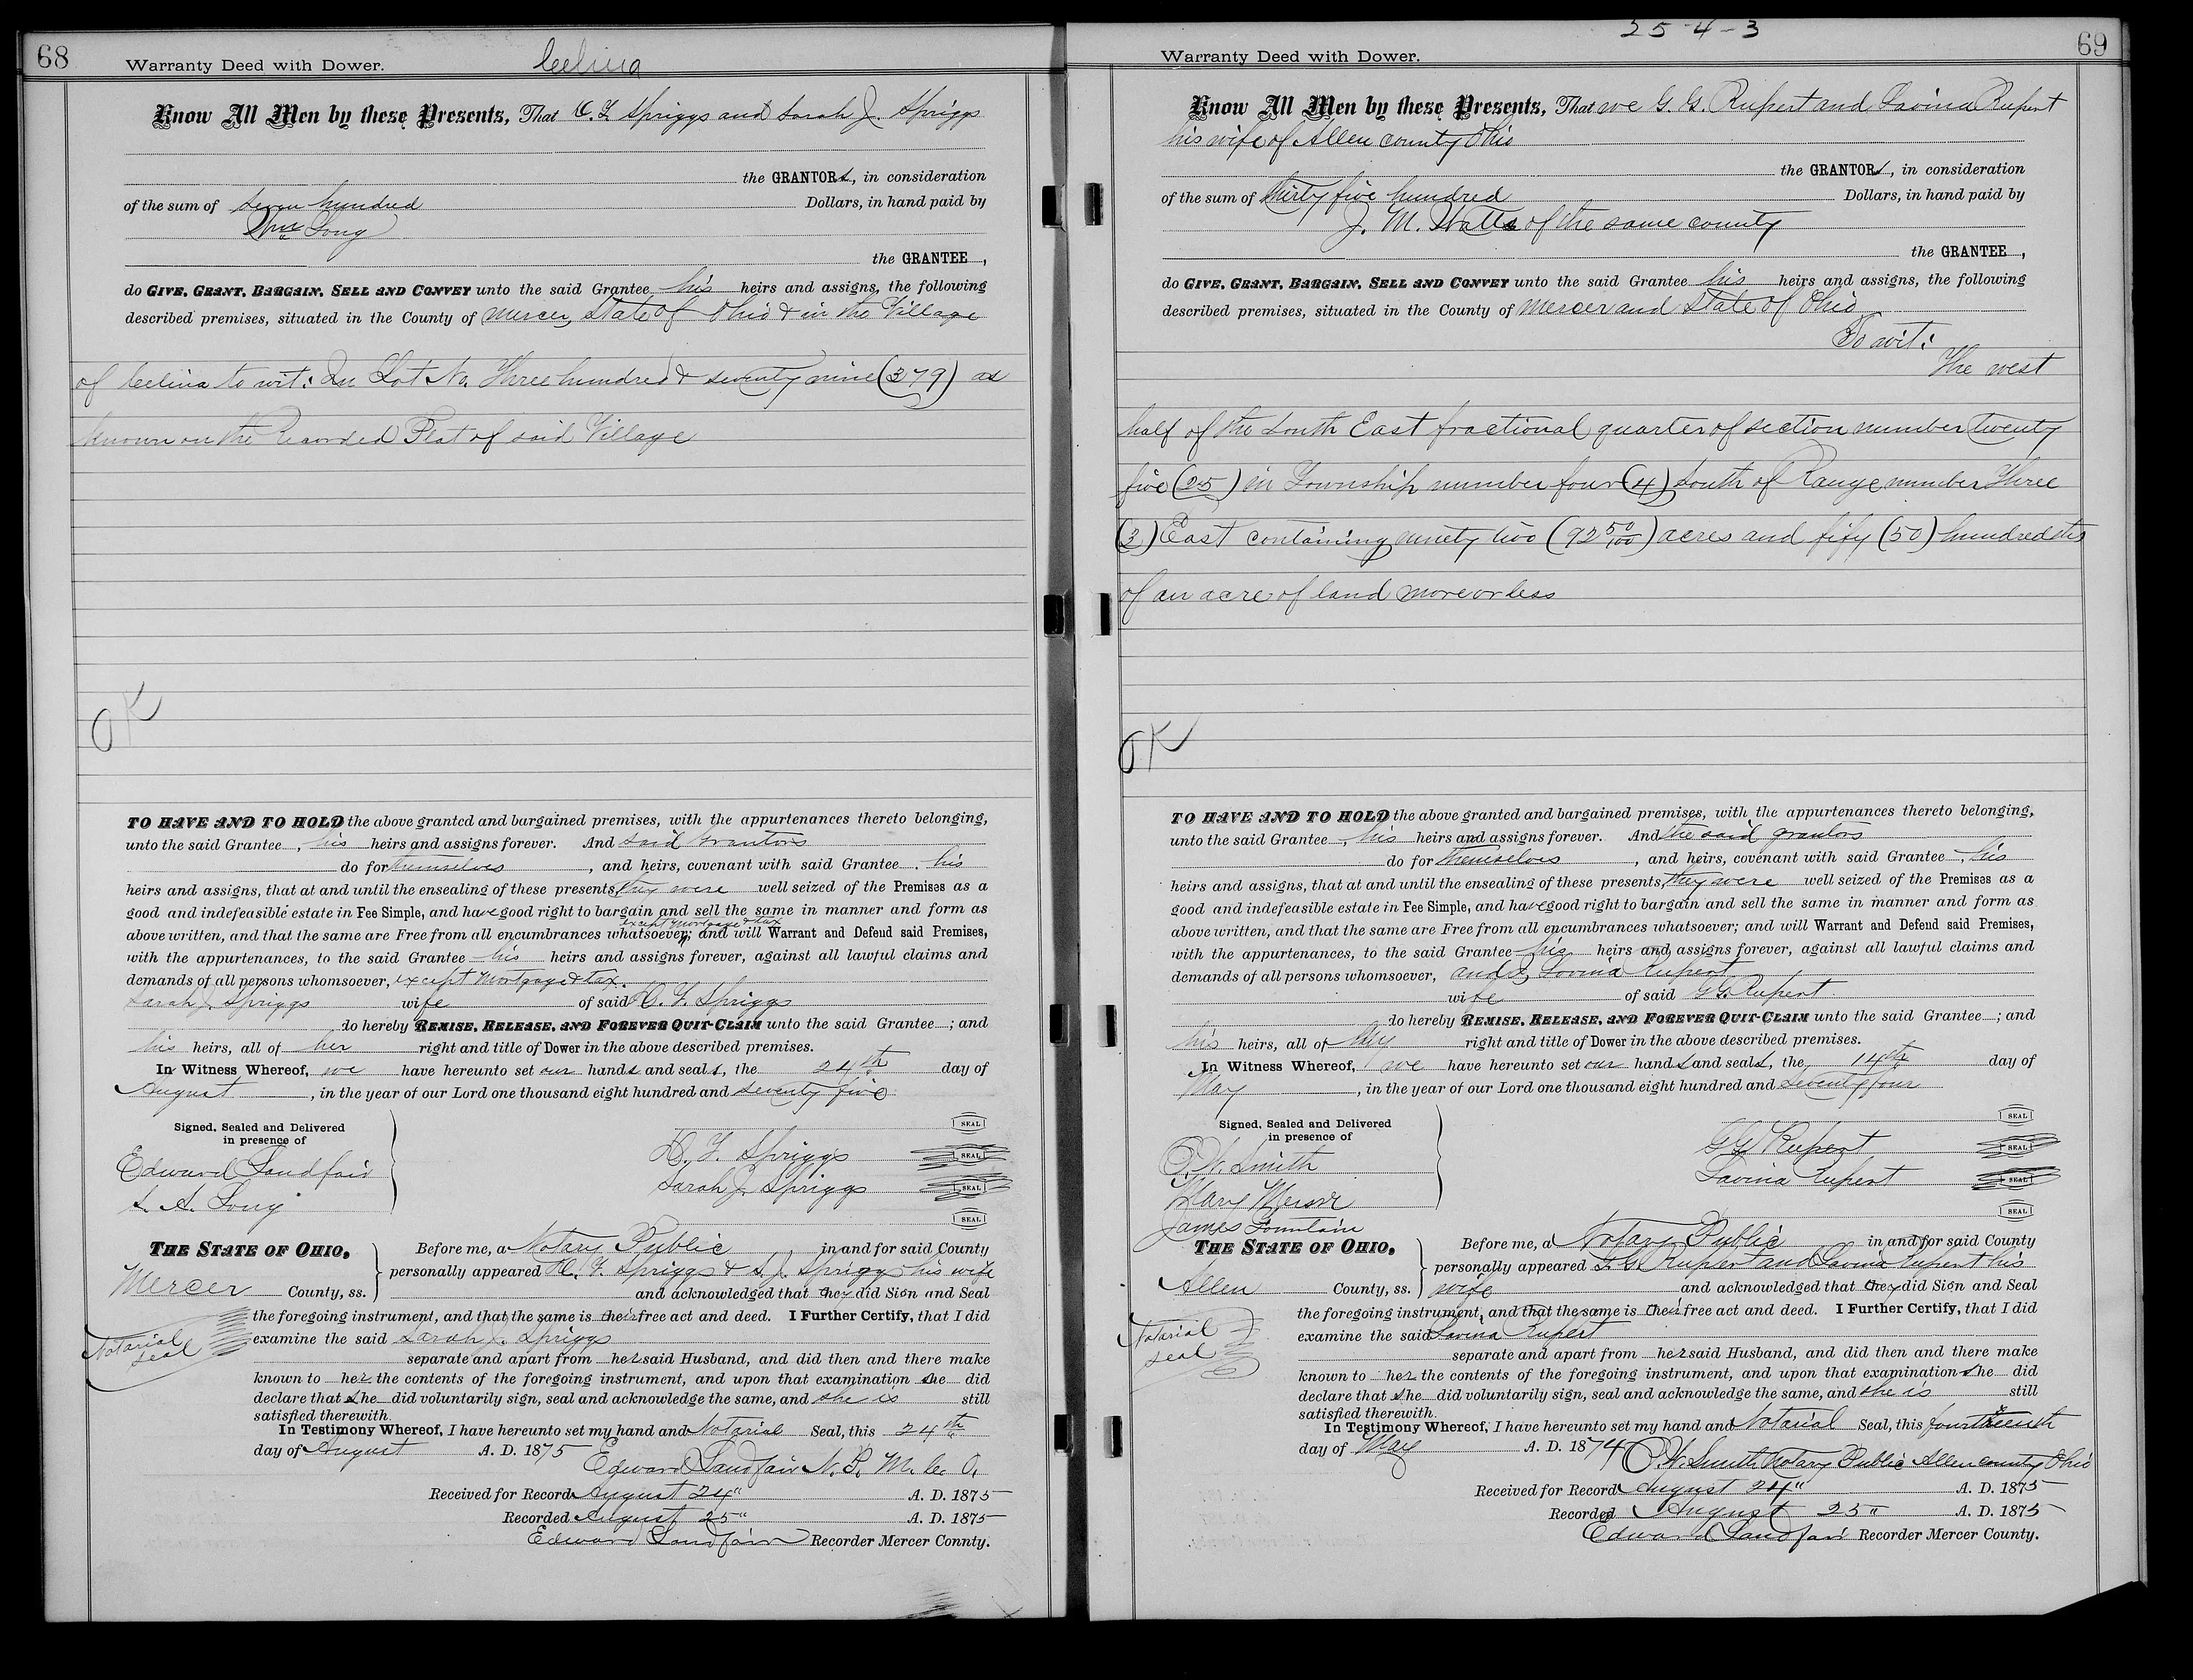 68
Warranty Deed with Dower. Celina
Know All Men by these Presents, That C. F. Spriggs and Sarah J. Spriggs
the GRANTORs, in consideration
of the sum of seven hundred Dollars, in hand paid by
Wm Long
the GRANTEE ,
do GIVE, GRANT, BARGAIN, SELL AND CONVEY unto the said Grantee his heirs and assigns, the following
described premises, situated in the County of Mercer, State of Ohio & in the Village
of Celina to wit: In Lot No. Three hundred & seventy nine (379) as
known on the Recorded Plat of said Village
OK
TO HAVE AND TO HOLD the above granted and bargained premises, with the appurtenances thereto belonging,
unto the said Grantee , his heirs and assigns forever. And said Grantors
do for themselves , and heirs, covenant with said Grantee , his
heirs and assigns, that at and until the ensealing of these presents, they were well seized of the Premises as a
good and indefeasible estate in Fee Simple, and have good right to bargain and sell the same in manner and form as
except mortgage & tax
above written, and that the same are Free from all encumbrances whatsoever; and will Warrant and Defend said Premises,
with the appurtenances, to the said Grantee his heirs and assigns forever, against all lawful claims and
demands of all persons whomsoever, except mortgage & tax.
Sarah J. Spriggs wife of said C. F. Spriggs
do hereby REMISE, RELEASE, AND FOREVER QUIT-CLAIM unto the said Grantee ; and
his heirs, all of her right and title of Dower in the above described premises.
In Witness Whereof, we have hereunto set our hands and seals, the 24th day of
August , in the year of our Lord one thousand eight hundred and seventy five
Signed, Sealed and Delivered
in presence of
SEAL
C. F. Spriggs SEAL
Edward Sandfair
Sarah J. Spriggs SEAL
S. A. Long
SEAL
THE STATE OF OHIO,
Mercer County, ss.
Before me, a Notary Public in and for said County
personally appeared C. F. Spriggs & S. J. Spriggs his wife
and acknowledged that they did Sign and Seal
the foregoing instrument, and that the same is their free act and deed. I Further Certify, that I did
Notarial seal
examine the said Sarah J. Spriggs
separate and apart from her said Husband, and did then and there make
known to her the contents of the foregoing instrument, and upon that examination she did
declare that She did voluntarily sign, seal and acknowledge the same, and she is still
satisfied therewith.
In Testimony Whereof, I have hereunto set my hand and Notarial Seal, this 24th
day of August A. D. 1875 Edward Sandfair N. P. M. Co. O.
Received for Record August 24" A. D. 1875
Recorded August 25" A. D. 1875
Edward Sandfair Recorder Mercer Connty.
25-4-3
69
Warranty Deed with Dower.
Know All Men by these Presents, That we G. G. Rupert and Lavina Rupert
his wife of Allen county Ohio
the GRANTORs, in consideration
of the sum of thirty five hundred Dollars, in hand paid by
J. M. Watts of the same county
the GRANTEE ,
do GIVE, GRANT, BARGAIN, SELL AND CONVEY unto the said Grantee his heirs and assigns, the following
described premises, situated in the County of Mercer and State of Ohio
To wit:
The west
half of the South East fractional quarter of section number twenty
five (25) in Township number four (4) South of Range number Three
(3) East containing ninety two (92 50/100) acres and fify (50) hundredths
of an acre of land more or less
OK
TO HAVE AND TO HOLD the above granted and bargained premises, with the appurtenances thereto belonging,
unto the said Grantee , his heirs and assigns forever. And the said grantors
do for themselves , and heirs, covenant with said Grantee , his
heirs and assigns, that at and until the ensealing of these presents, they were well seized of the Premises as a
good and indefeasible estate in Fee Simple, and have good right to bargain and sell the same in manner and form as
above written, and that the same are Free from all encumbrances whatsoever; and will Warrant and Defend said Premises,
with the appurtenances, to the said Grantee his heirs and assigns forever, against all lawful claims and
demands of all persons whomsoever, and I, Lovina Rupert
wife of said G G. Rupert
do hereby REMISE, RELEASE, AND FOREVER QUIT-CLAIM unto the said Grantee ; and
his heirs, all of My right and title of Dower in the above described premises.
In Witness Whereof, we have hereunto set our hands and seals, the 14th day of
May , in the year of our Lord one thousand eight hundred and seventy four
Signed, Sealed and Delivered
in presence of
SEAL
G G Rupert SEAL
P. W. Smith
Lavina Rupert SEAL
SEAL
James Fountain
THE STATE OF OHIO,
Allen County, ss.
Before me, a Notary Public in and for said County
personally appeared G. G. Rupert and Lavina Rupert his
wife and acknowledged that they did Sign and Seal
the foregoing instrument, and that the same is their free act and deed. I Further Certify, that I did
Notarial seal
examine the said Lavina Rupert
separate and apart from her said Husband, and did then and there make
known to her the contents of the foregoing instrument, and upon that examination she did
declare that She did voluntarily sign, seal and acknowledge the same, and she is still
satisfied therewith.
In Testimony Whereof, I have hereunto set my hand and Notarial Seal, this fourteenth
day of May A. D. 1874 P. W. Smith Notary Public Allen county Ohio
Received for Record August 24" A. D. 1875
Recorded August 25" A. D. 1875
Edward Sandfair Recorder Mercer County.